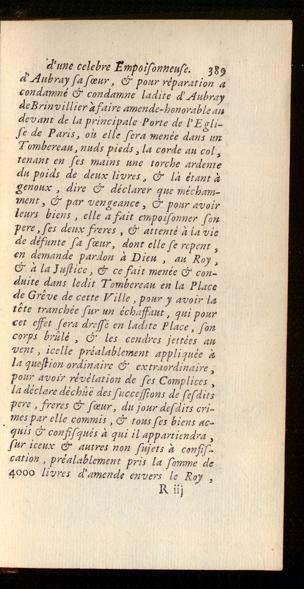 d'une celebre Empoiſonneuſe. 389
d'Aubray ſa ſœur, & pour réparation a
condamné & condamne ladite d'Aubray
de Brinvillier à faire amende-honorable au
devant de la principale Porte de l'Egli-
ſe de Paris, où elle ſera menée dans un
Tombereau, nuds pieds, la corde au col,
tenant en ſes mains une torche ardente
du poids de deux livres, & là étant à
genoux, dire & déclarer que mécham-
ment, & par vengeance, & pour avoir
leurs biens, elle a fait empoiſonner ſon
pere, ſes deux freres, & attenté à la vie
de défunte ſa ſœur, dont elle ſe repent,
en demande pardon à Dieu, au Roy,
& à la Juſtice, & ce fait menée & con-
duite dans ledit Tombereau en la Place
de Grève de cette Ville, pour y avoir la
tête tranchée ſur un échaffaut, qui pour
cet effet ſera dreſſé en ladite Place, ſon
corps brûlé, & les cendres jettées au
vent, icelle préalablement appliquée à
la queſtion ordinaire & extraordinaire,
pour avoir révélation de ſes Complices,
la déclare déchüe des ſucceſſions de ſeſdits
pere, freres & ſœur, du jour deſdits cri-
mes par elle commis, & tous ſes biens ac-
quis & confiſqués à qui il appartiendra,
ſur iceux & autres non ſujets à confiſ-
cation, préalablement pris la ſomme de
4000 livres d'amende envers le Roy,
R iij